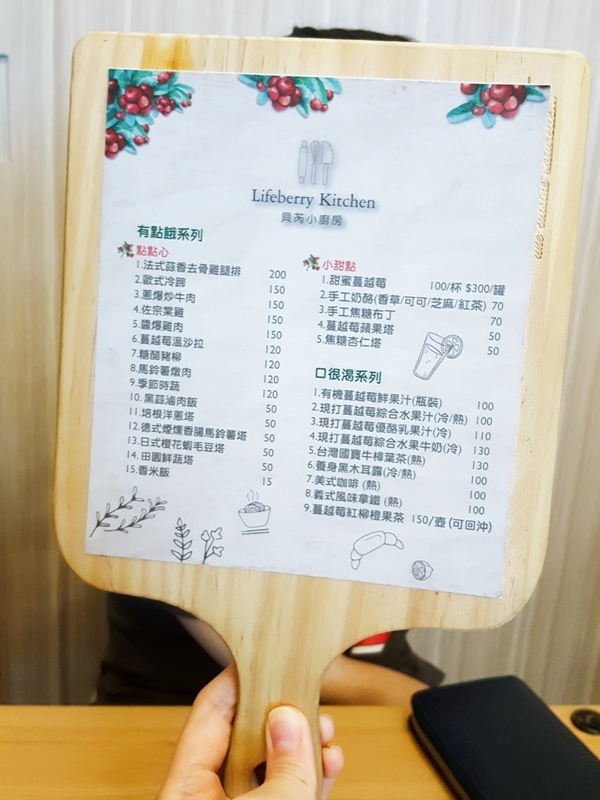 Lifeberry Kitchen
貝芮小廚房
有點餓系列
點點心
1.法式蒜香去骨雞腿排 200
2.歐式冷蹄 150
3.蔥爆炒牛肉 150
4.佐宗棠雞 150
5.醬爆雞肉 150
6.蔓越莓溫沙拉 150
7.糖醋豬柳 120
8.馬鈴薯燉肉 120
9.季節時蔬 120
10.黑蒜滷肉飯 120
11.培根洋蔥塔 50
12.德式煙燻香腸馬鈴薯塔 50
13.日式櫻花蝦毛豆塔 50
14.田園鮮蔬塔 50
15.香米飯 15
小甜點
1.甜蜜蔓越莓 100/杯 $300/罐
2.手工奶酪(香草/可可/芝麻/紅茶) 70
3.手工焦糖布丁 70
4.蔓越莓蘋果塔 50
5.焦糖杏仁塔 50
口很渴系列
1.有機蔓越莓鮮果汁(瓶裝) 100
2.現打蔓越莓綜合水果汁(冷/熱) 100
3.現打蔓越莓優酪乳果汁(冷) 110
4.現打蔓越莓綜合水果牛奶(冷) 130
5.台灣國寶牛樟菜茶(熱) 130
6.養身黑木耳露(冷/熱) 100
7.美式咖啡 (熱) 100
8.義式風味拿鐵 (熱) 100
9.蔓越莓紅柳橙果茶 150/壺 (可回沖)